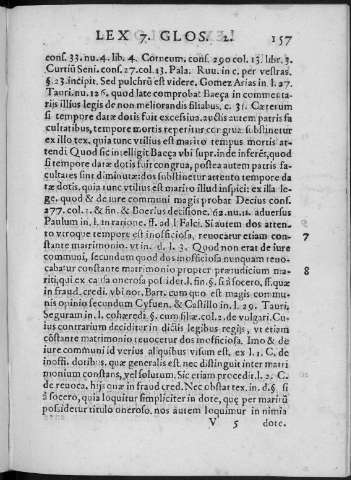 LEX 7. GLOS. 2. 157
conf. 33. nu. 4. lib. 4. Corneum. conf. 290 col. 13. libr. 3.
Curtiũ Seni. conf. 27. col. 13. Pala. Ruu. in c. per vestras.
§. 23. incipit. Sed pulchrũ est videre. Gomez Arias in l. 27.
Tauri. nu. 126. quod late comprobat Baeça in commenta-
riis illius legis de non meliorandis filiabus, c. 31. Cæterum
si tempore datæ dotis fuit excessiua. auctis autem patris fa
cultatibus, tempore mortis reperitur congrua: substinetur
ex illo tex. quia tunc vtilius est marito tempus mortis at-
tendi Quod sic intelligit Baeça vbi supr. inde inferēs, quod
si tempore datæ dotis fuit congrua, postea autem patris fa-
cultates sint diminutæ: dos substinetur attento tempore da
tæ dotis, quia tunc vtilius est mariro illud inspici: ex illa le-
ge. quod & de iure communi magis probat Decius conf.
277. col. 1. & fin. & Boerius decisione. 62. nu. 12. aduersus
Paulum in. l. in ratione. ff. ad l Falci. Si autem dos atten-
to vtroque tempore est inofficiosa, reuocatur etiam con- 7
stante matrimonio. vt in. d. l. 3. Quod non erat de iure
communi, secundum quod dos inofficiosa nunquam reuo-
cabatur constante matrimonio propter præiudicium ma- 8
riti, qui ex causa onerosa possidet. l. fin. §. si à socero, ff. quæ
in fraud. credi. vbi not. Bart. cum quo est magis commu-
nis opinio secundum Cyfuen. & Castillo in l. 29. Tauri,
Seguram in l. cohæredi. §. cum filiæ. col. 2. de vulgari. Cu-
ius contrarium deciditur in dictis legibus regijs, vt etiam
cōstante matrimonio reuocetur dos inofficiosa. Imo & de
iure communi id verius aliquibus visum est. ex l. 1. C. de
inoffi. dotibus. quæ generalis est nec distinguit inter matri
monium constans, vel solutum. Sic etiam procedit. l. 2. C.
de reuoca, hijs quæ in fraud cred. Nec obstat tex. in. d. §. si
à socero, quia loquitur simpliciter in dote, quę per maritũ
possidetur titulo oneroso. nos autem loquimur in nimia
V 5 dote.